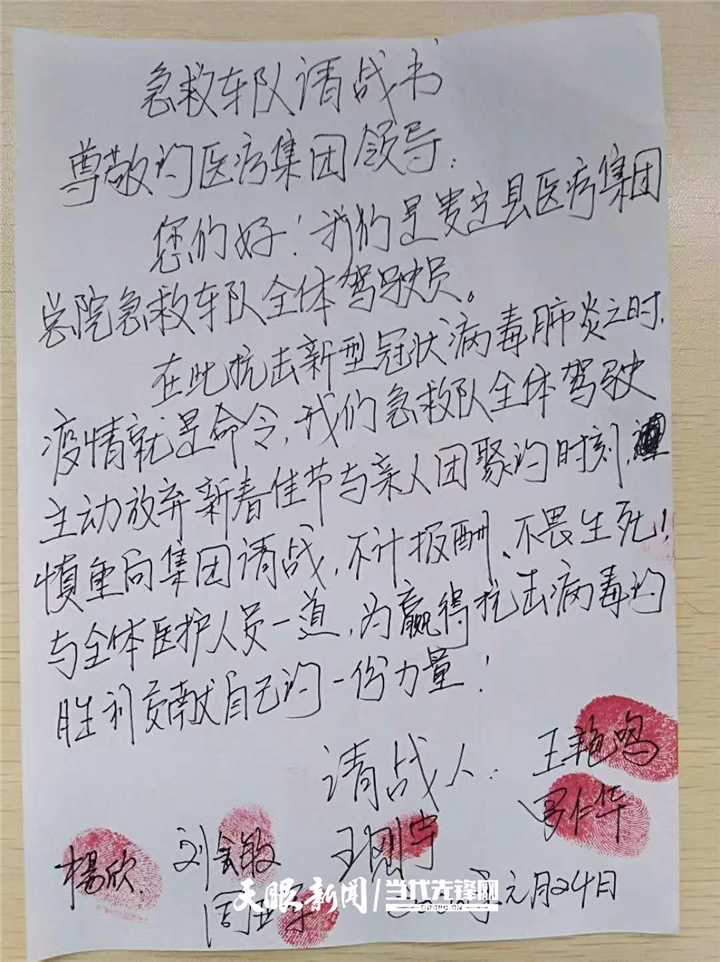 急救车队请战书
尊敬的医疗集团领导：
您们好！我们是贵定县医疗集团
总院急救车队全体驾驶员。
在此抗击新型冠状病毒肺炎之时，
疫情就是命令，我们急救队全体驾驶
主动放弃新春佳节与亲人团聚的时刻，
慎重向集团请战，不计报酬、不畏生死！
与全体医护人员一道，为赢得抗击病毒的
胜利贡献自己的一份力量！
请战人：王艳鸣
罗仁华
杨欣 刘会敏 王刚
周
2020年元月24日
天眼新闻 当代先锋网